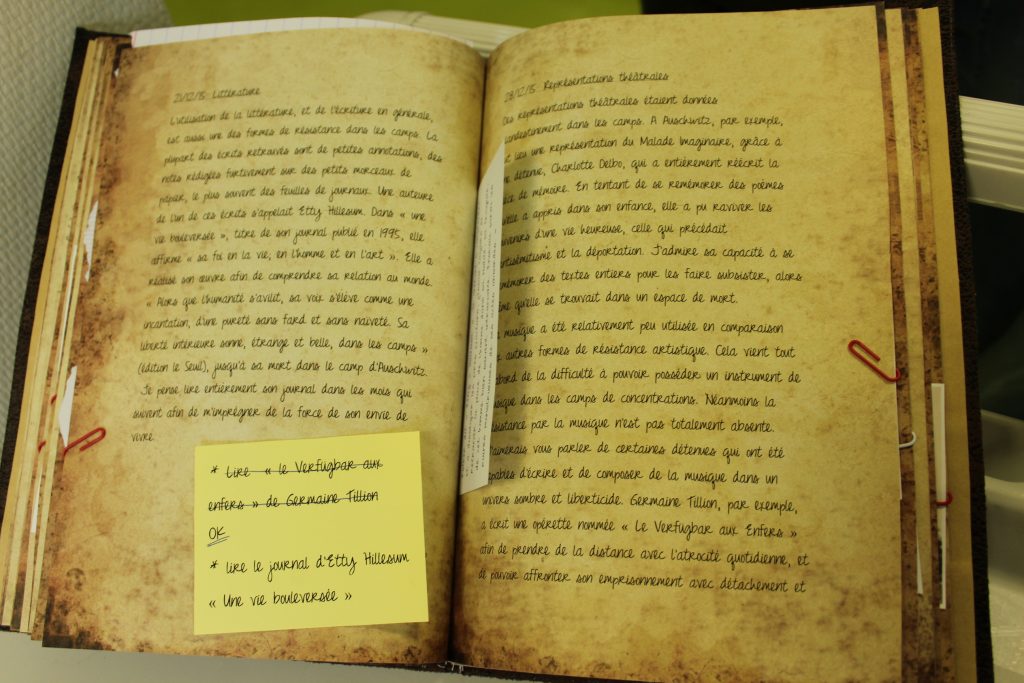 21/12/15 Littérature
L'utilisation de la littérature, et de l'écriture en générale,
est aussi une des formes de résistance dans les camps. La
plupart des écrits retrouvés sont de petites annotations, des
notes rédigées furtivement sur des petits morceaux de
papier, le plus souvent des feuilles de journaux. Une auteure
de l'un de ces écrits s'appelait Etty Hillesum. Dans « une
vie bouleversée », titre de son journal publié en 1995, elle
affirme « sa foi en la vie, en l'homme et en l'art ». Elle a
réalisé son œuvre afin de comprendre sa relation au monde.
« Alors que l'humanité s'avilit, sa voix s'élève comme une
incantation, d'une pureté sans fard et sans naïveté. Sa
liberté intérieure sonne, étrange et belle, dans les camps »
(édition le Seuil), jusqu'à sa mort dans le camp d'Auschwitz.
Je pense lire entièrement son journal dans les mois qui
suivent afin de m'imprégner de la force de son envie de
vivre.
* Lire « le Verfügbar aux
enfers » de Germaine Tillion
OK
* lire le journal d'Etty Hillesum
« Une vie bouleversée »
28/12/15 Représentations théâtrales
Des représentations théâtrales étaient données
clandestinement dans les camps. A Auschwitz, par exemple,
lieu une représentation du Malade Imaginaire, grâce à
détenue, Charlotte Delbo, qui a entièrement réécrit la
de mémoire. En tentant de se remémorer des poèmes
a appris dans son enfance, elle a pu raviver les
d'une vie heureuse, celle qui précédait
et la déportation. J'admire sa capacité à se
des textes entiers pour les faire subsister, alors
qu'elle se trouvait dans un espace de mort.
musique a été relativement peu utilisée en comparaison
autres formes de résistance artistique. Cela vient tout
de la difficulté à pouvoir posséder un instrument de
musique dans les camps de concentrations. Néanmoins la
résistance par la musique n'est pas totalement absente.
J'aimerais vous parler de certaines détenues qui ont été
capables d'écrire et de composer de la musique dans un
univers sombre et liberticide. Germaine Tillion, par exemple,
a écrit une opérette nommée « Le Verfugbar aux Enfers »
afin de prendre de la distance avec l'atrocité quotidienne, et
de pouvoir affronter son emprisonnement avec détachement et